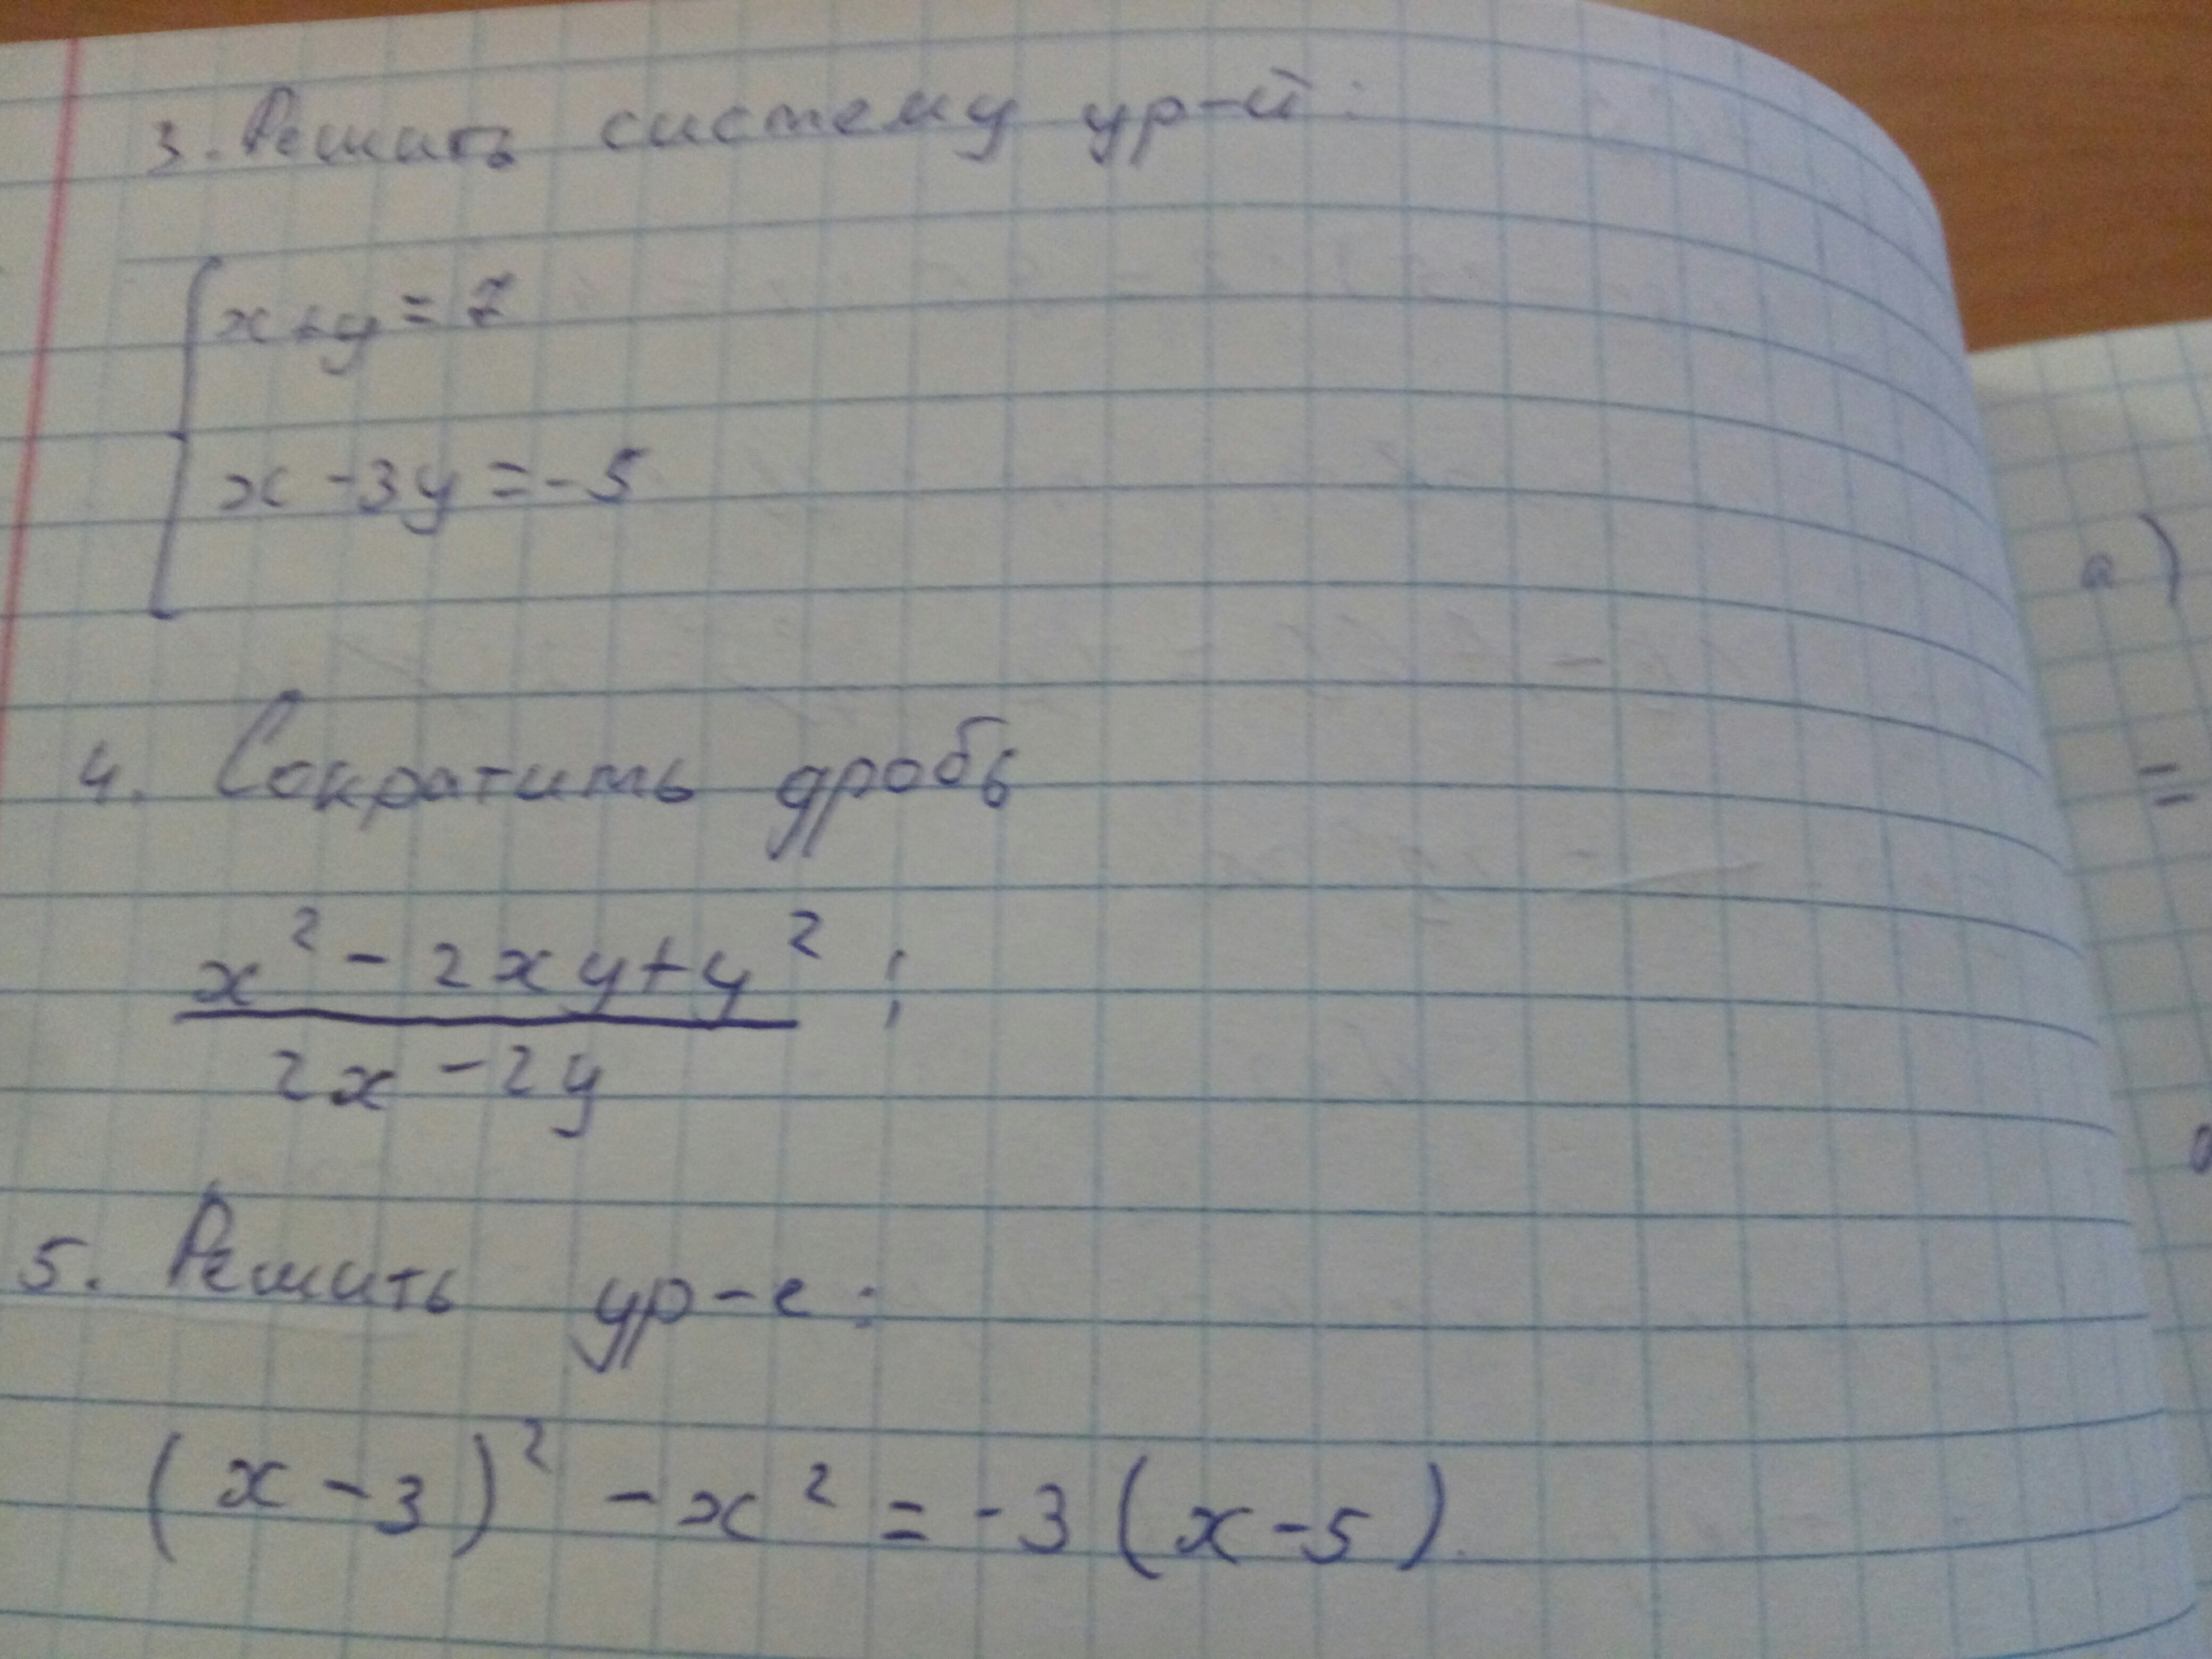 3. Решить систему ур-й:
x+y=7
x-3y=-5
4. Сократить дробь
x²-2xy+y² ;
2x-2y
5. Решить ур-е:
(x-3)²-x²=-3(x-5).
а)
=